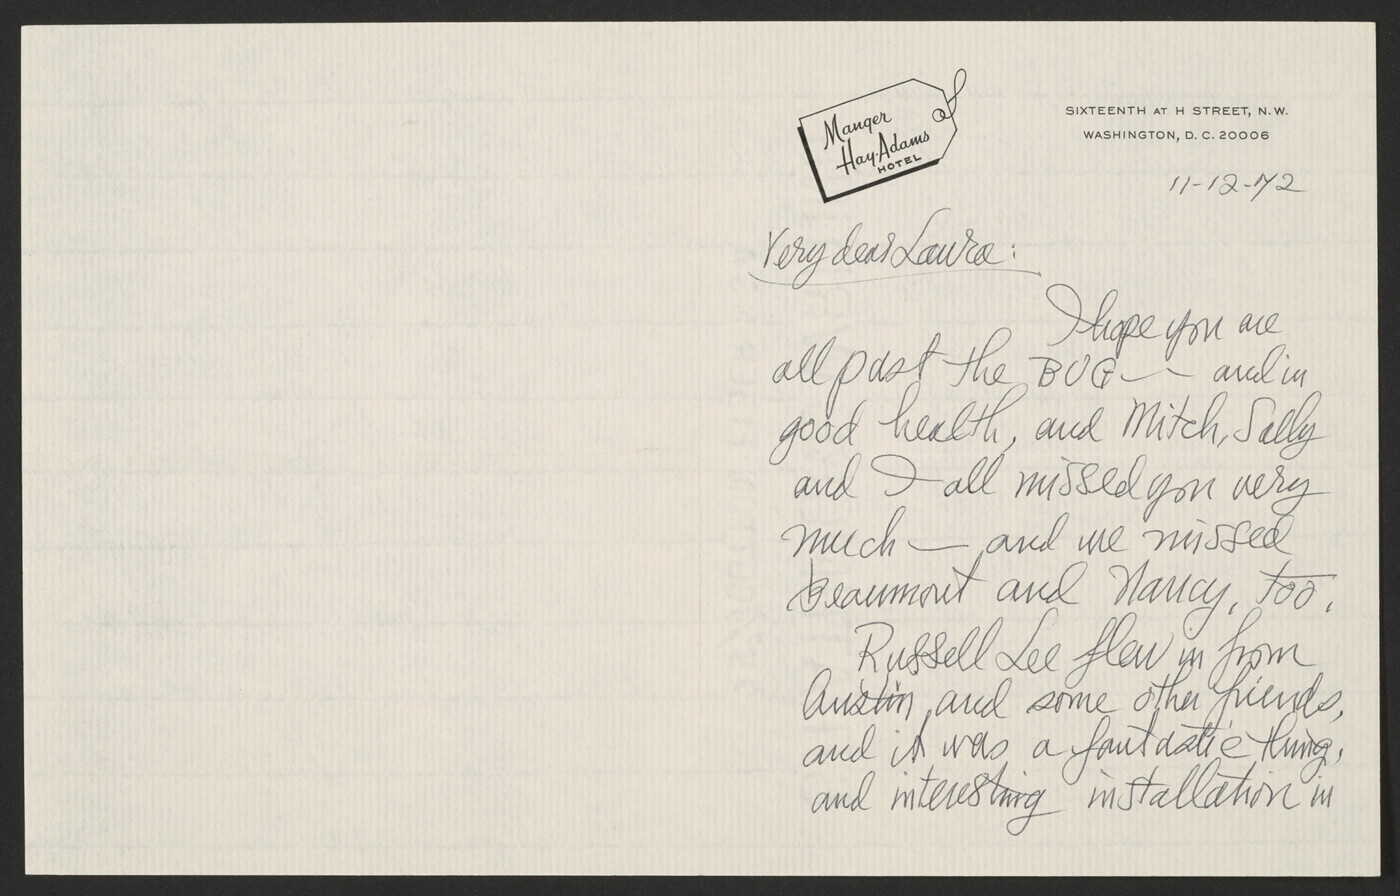 Manger
Hay-Adams
HOTEL
SIXTEENTH AT H STREET, N.W.
WASHINGTON, D.C. 20006
11-12-72
Very dear Laura:
I hope you are
all past the BUG — and in
good health, and Mitch, Sally
and I all missed you very
much — and we missed
Beaumont and Nancy, too.
Russell Lee flew in from
Austin, and some other friends,
and it was a fantastic thing,
and interesting installation in